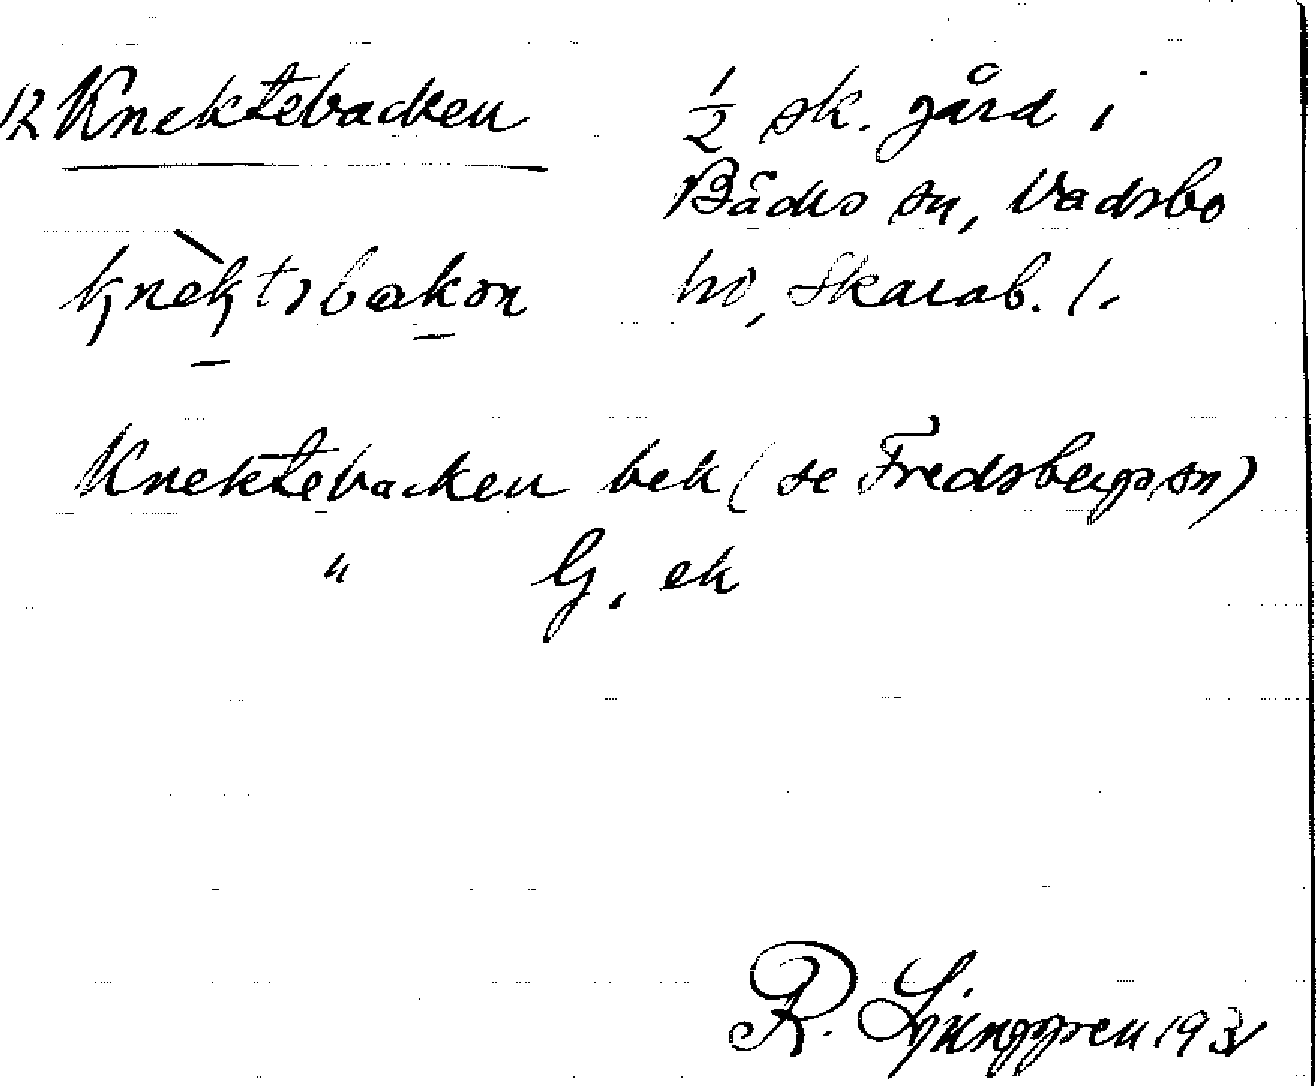 12 Knektebacken
½ sk. gård i
Bäcks sn, Vadsbo
hd, Skarab. l.
Knektebacken bek (se Fredsbergs sn)
" G. ek
R. Ljunggren